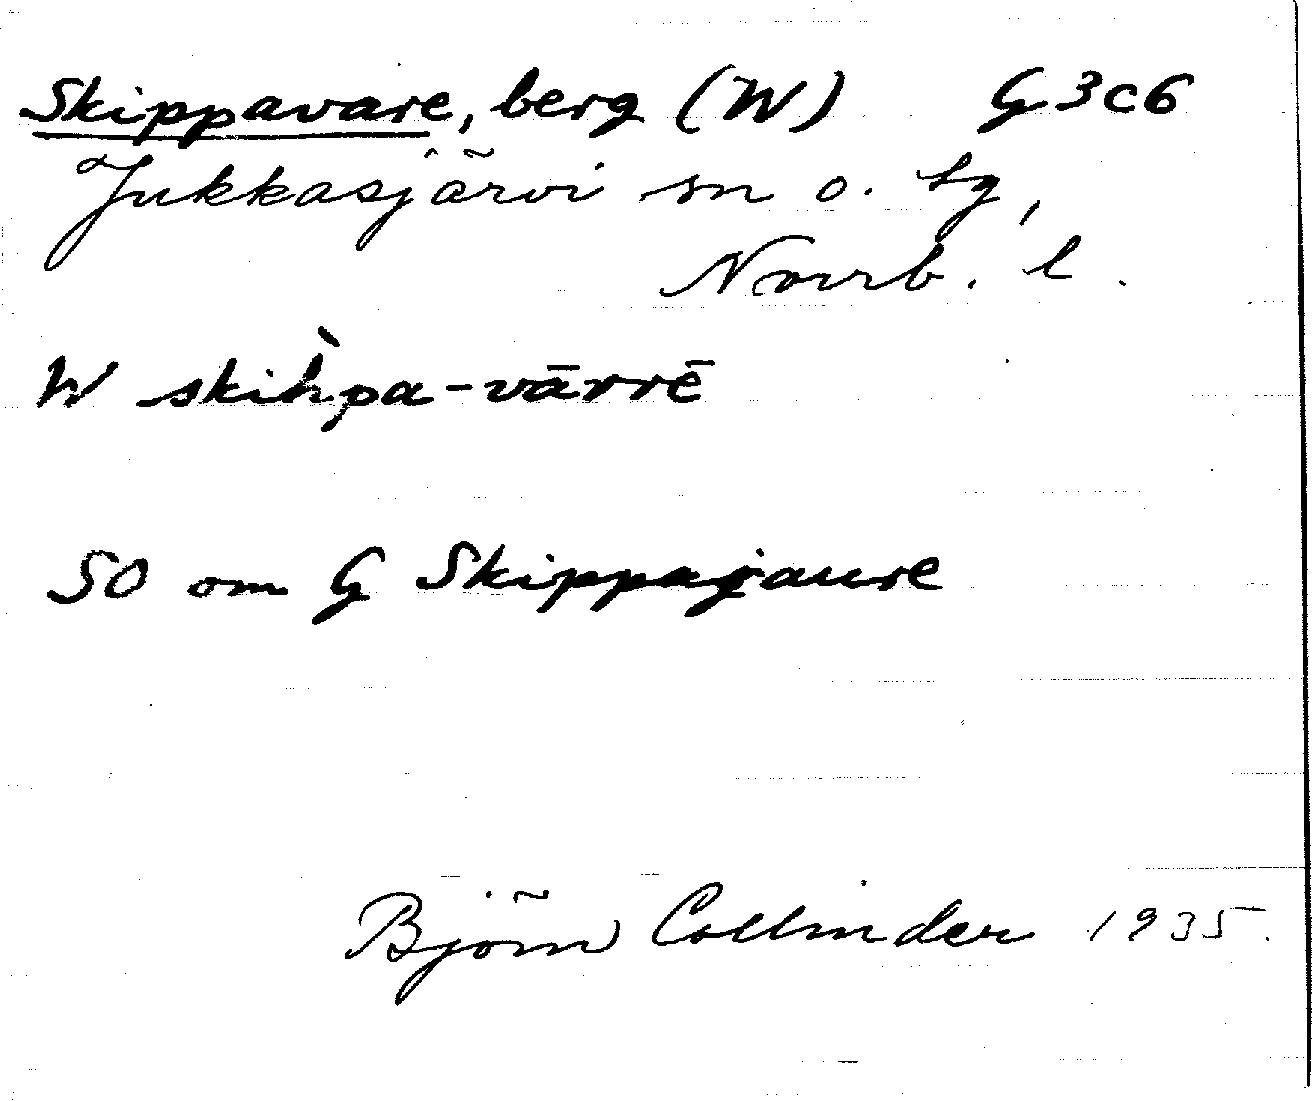 Skippavare, berg (W) G 3c6
Jukkasjärvi sn o. tg,
Norrb. l.
W skih̀pa-vārrē
SO om G Skippajaure
Björn Collinder 1935.